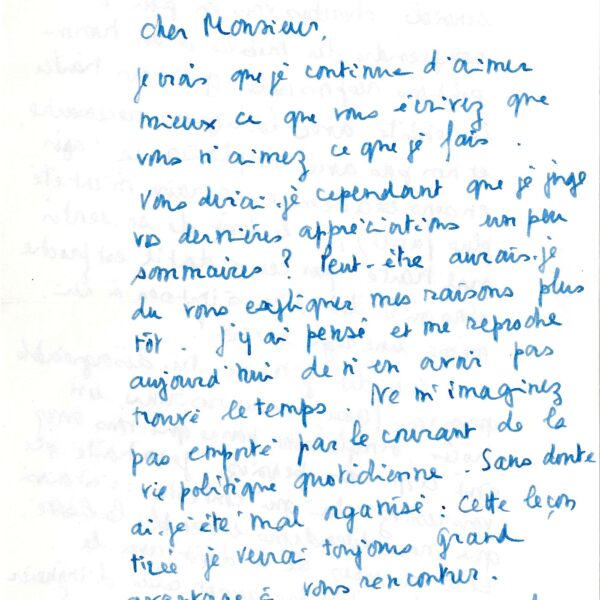 cher Monsieur,
je crois que je continue d'aimer
mieux ce que vous écrivez que
vous n'aimez ce que je fais.
Vous dirai-je cependant que je juge
vos dernières appréciations un peu
sommaires ? Peut-être aurais-je
du vous expliquer mes raisons plus
tôt. J'y ai pensé et me reproche
aujourd'hui de n'en avoir pas
trouvé le temps. Ne m'imaginez
pas emporté par le courant de la
vie politique quotidienne. Sans doute
ai-je été mal organisé : Cette leçon
tirée je verrai toujours grand
avantage à vous rencontrer.